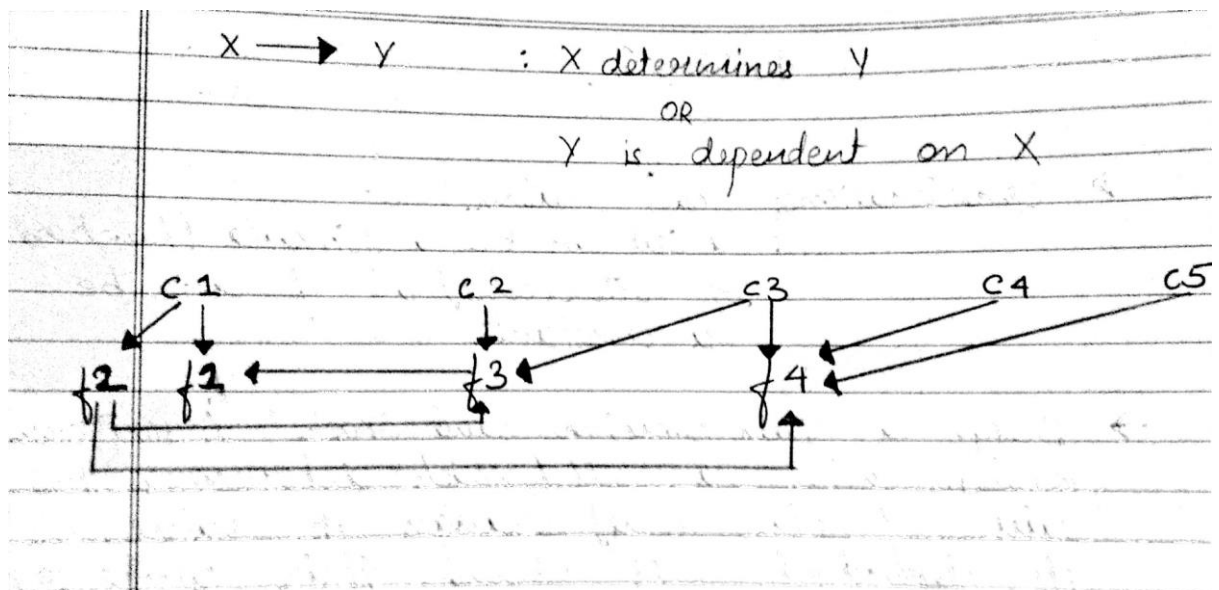 X → Y : X determines Y
OR
Y is dependent on X
C1 C2 C3 C4 C5
f2 f1 f3 f4